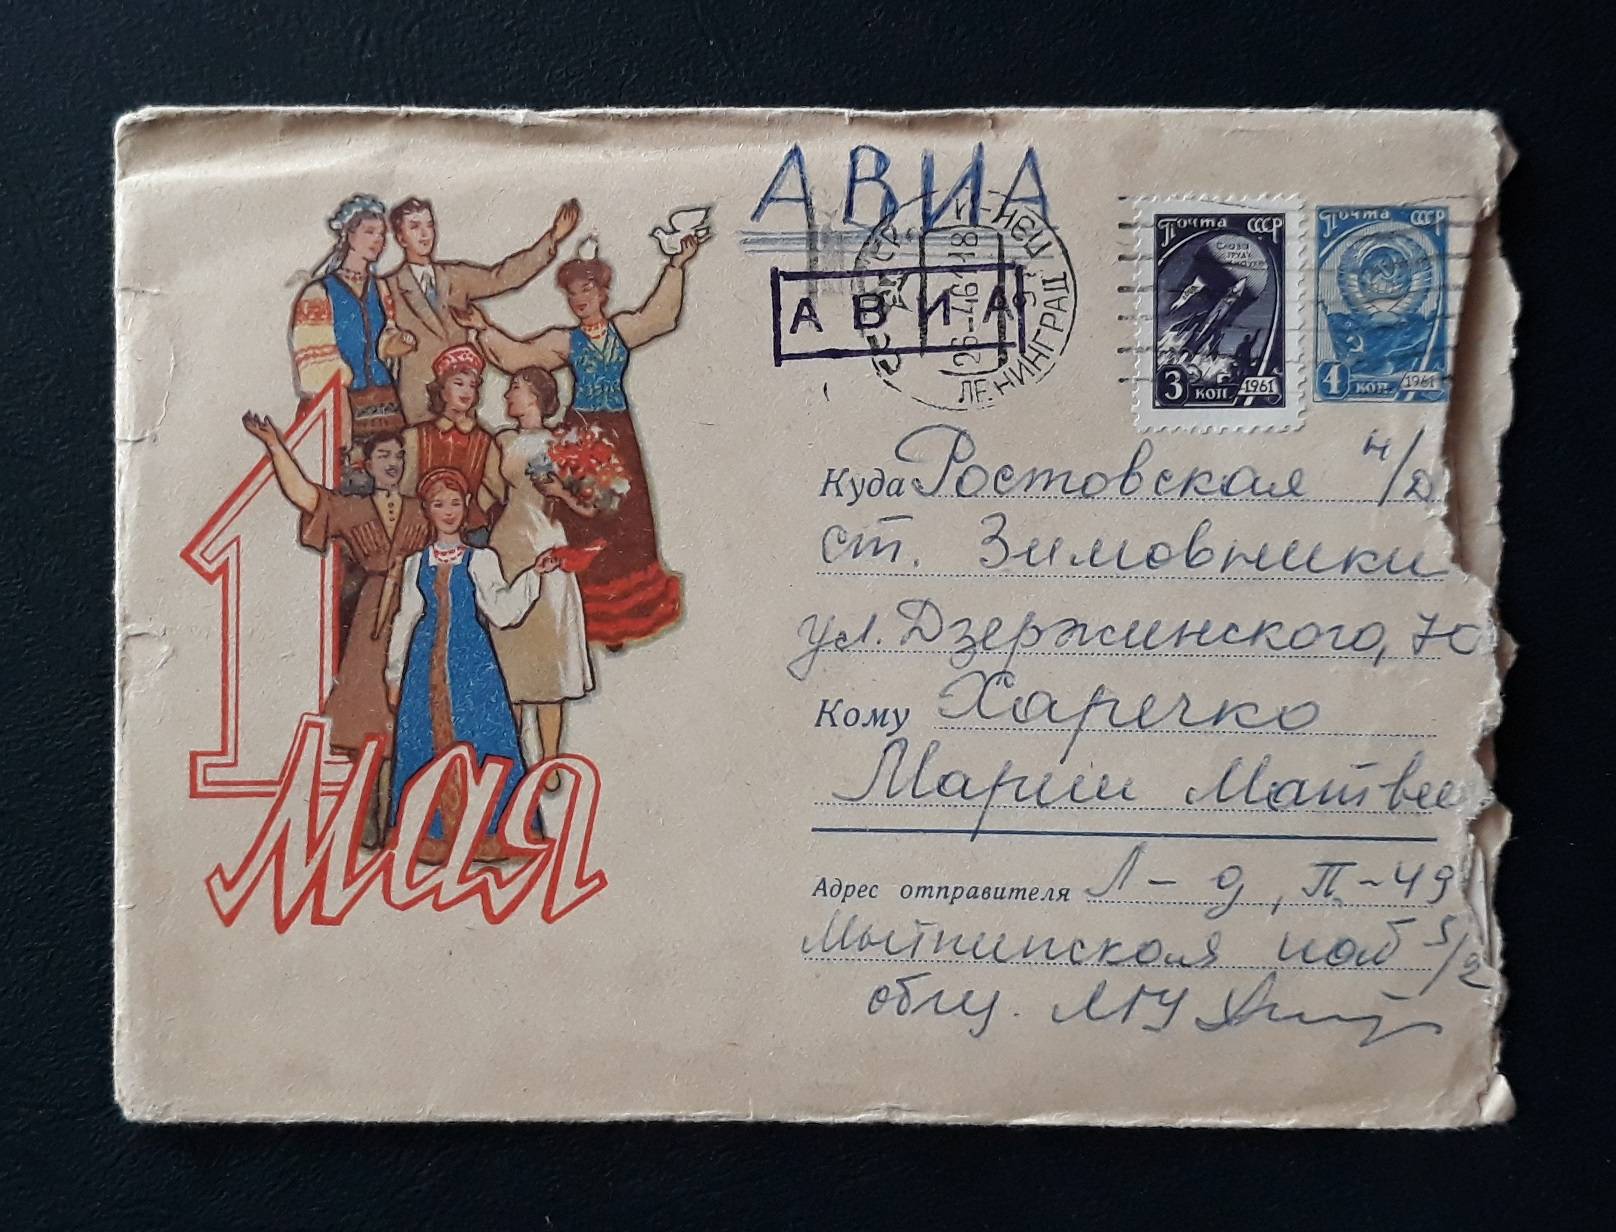 АВИА
АВИА
ЛЕНИНГРАД
Почта СССР
СЛАВА
ТРУДУ
3 коп 1961
Почта СССР
4 коп. 1961
1 Мая
Куда Ростовская н/Д
ст. Зимовники
ул. Дзержинского, 70
Кому Харечко
Марии Матвее
Адрес отправителя Л-д, П-49
Мытнинская наб 5/2
общ. ЛГУ